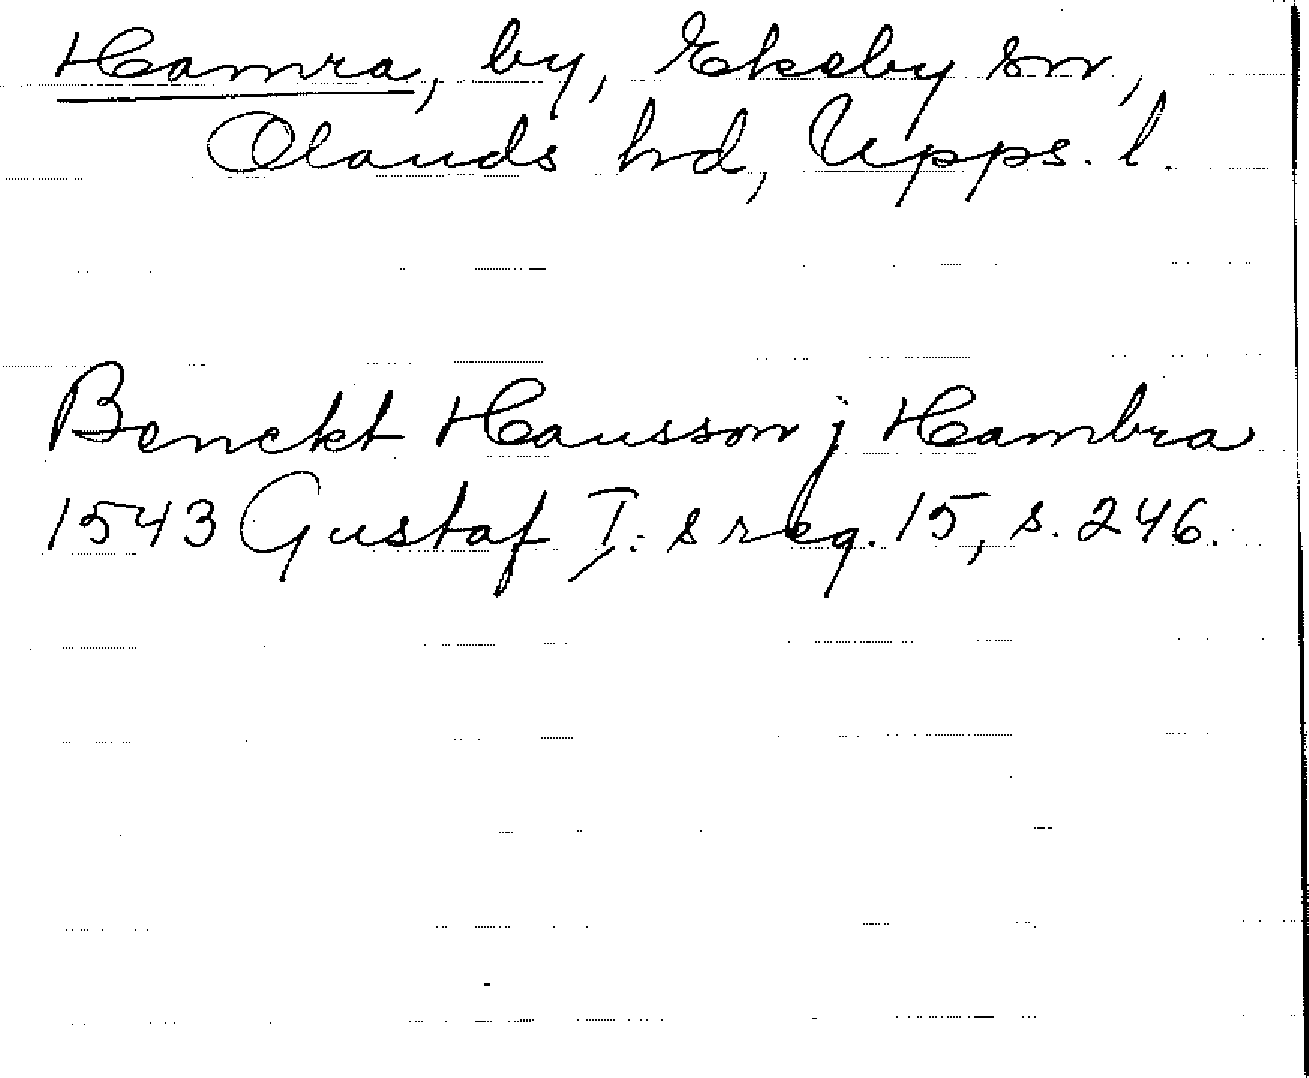 Hamra, by, Ekeby sn,
Olands hd, Upps. l.
Benckt Hansson j Hambra
1543 Gustaf I:s reg. 15, s. 246.